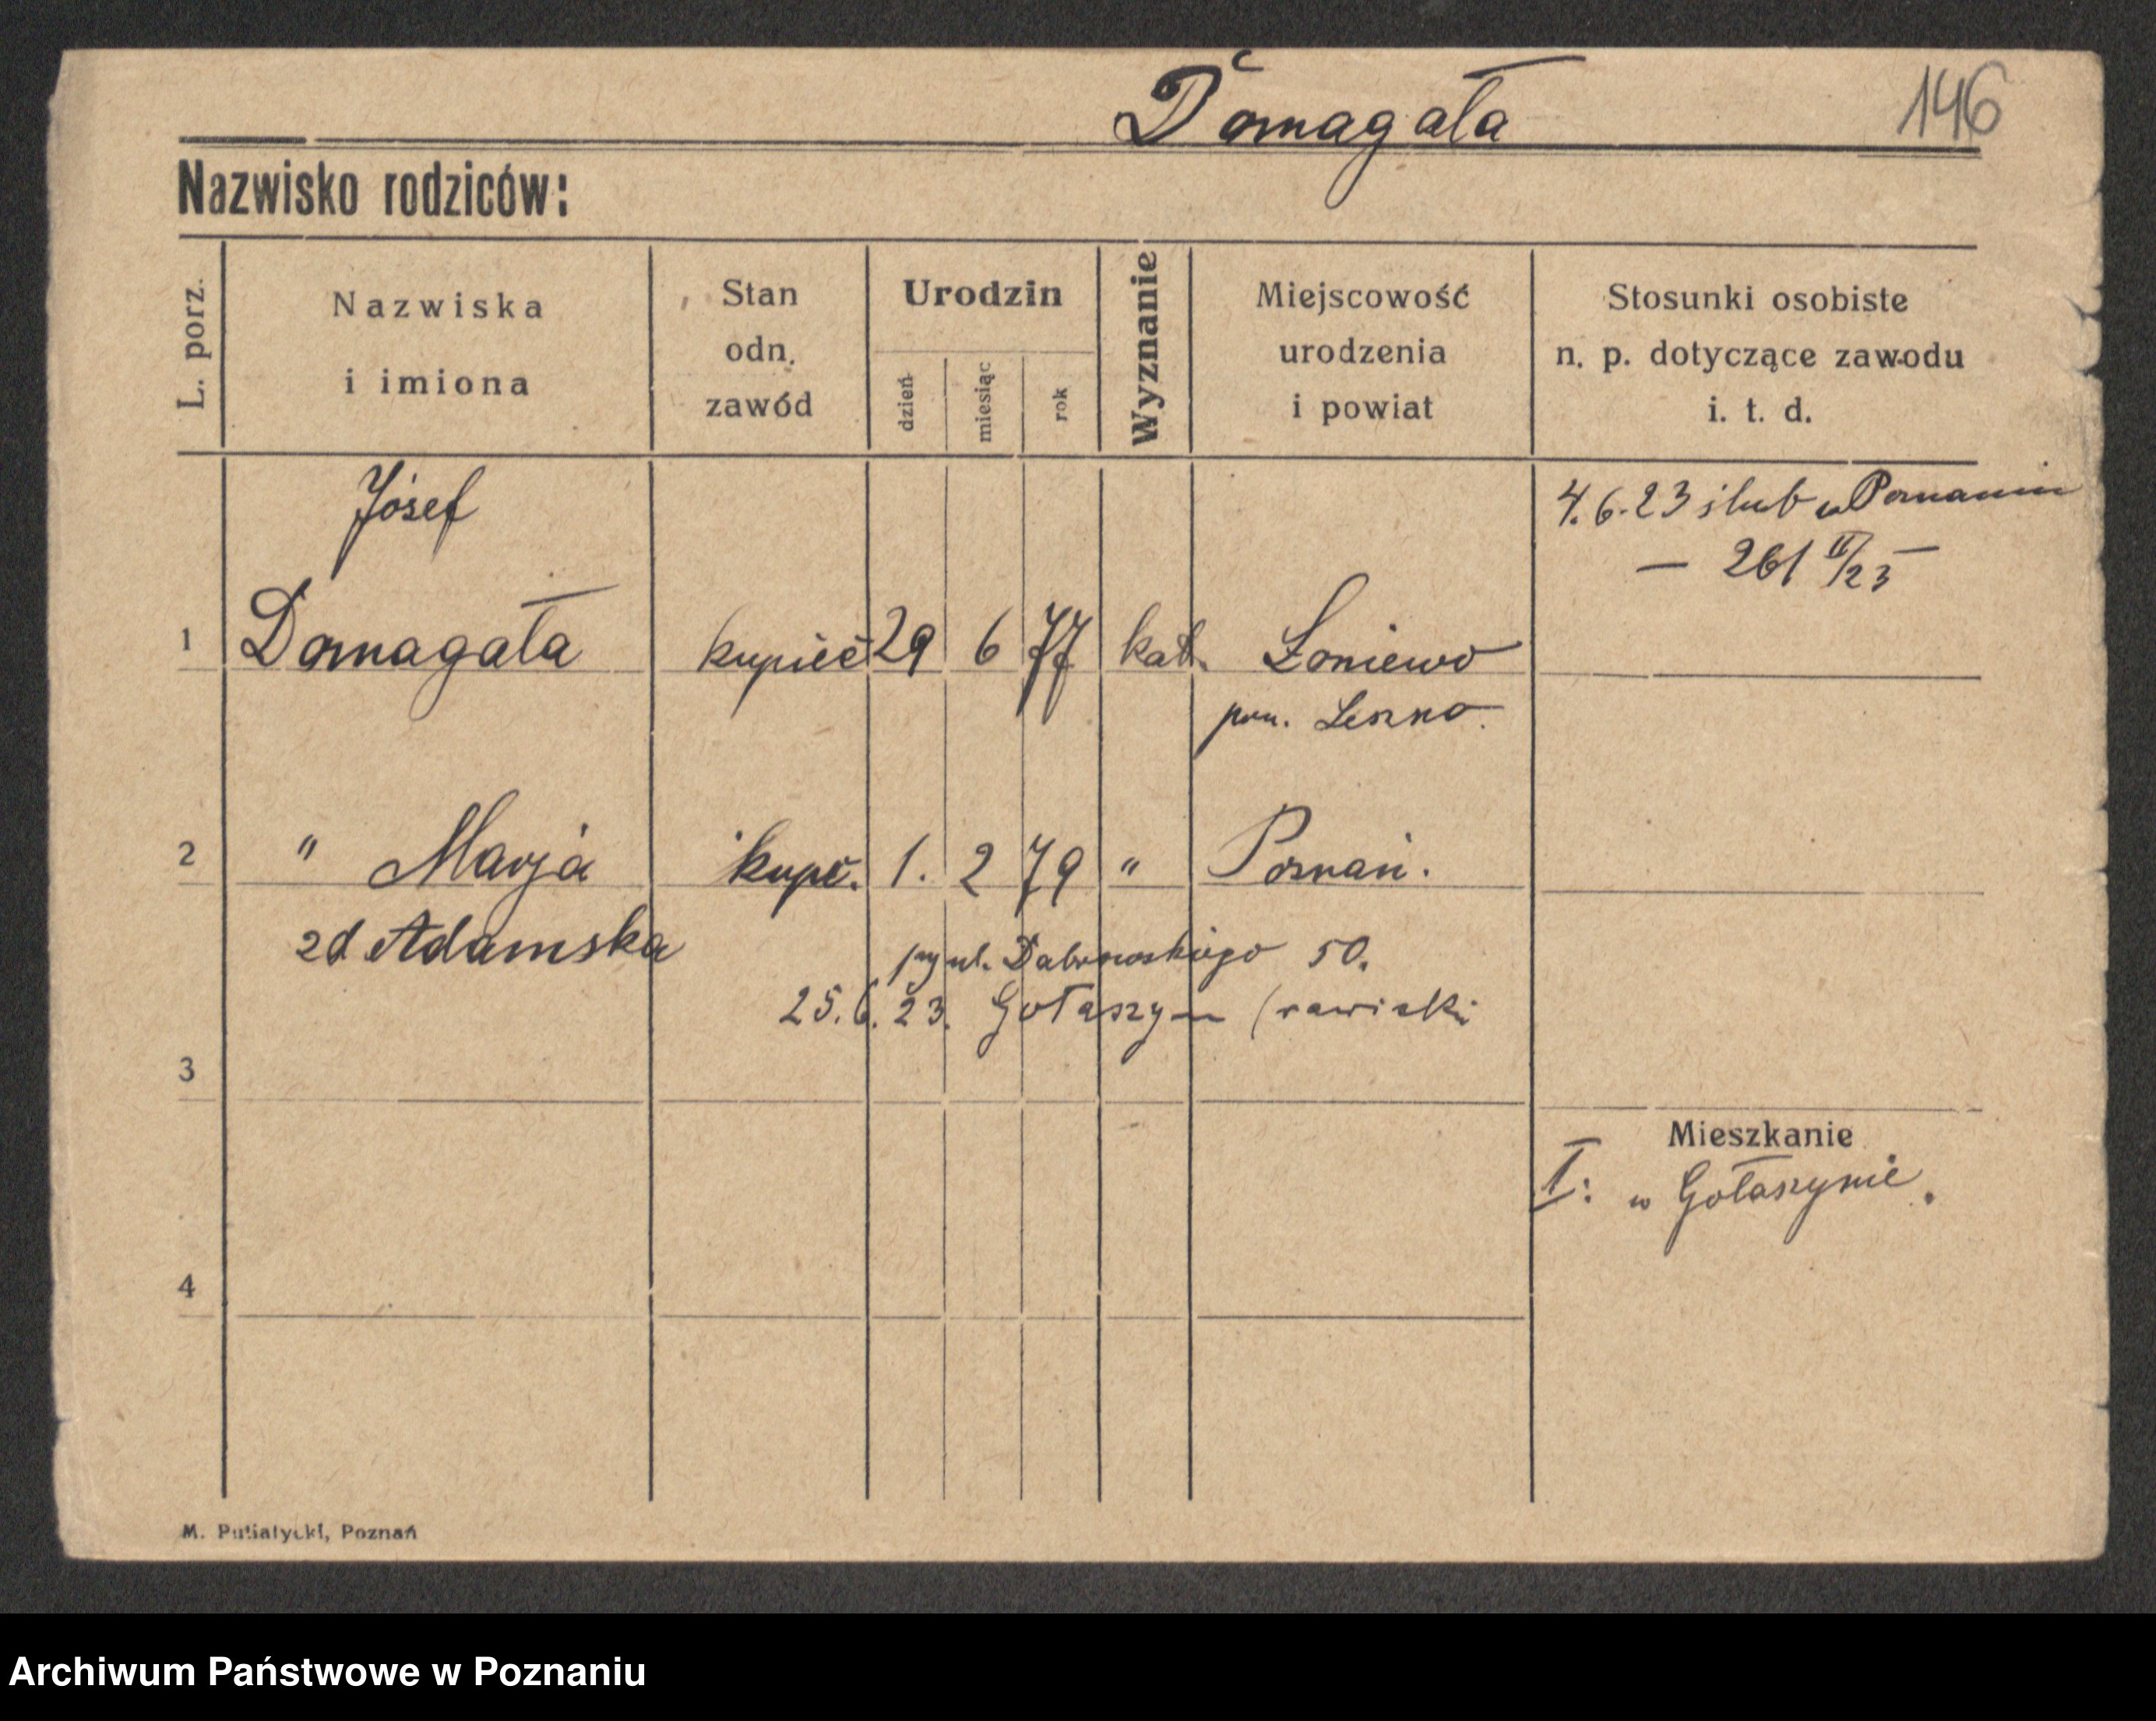 Domagała
146
Nazwisko rodziców:
L. porz.
Nazwiska
i imiona
Stan
odn.
zawód
Urodzin
dzień
miesiąc
rok
Wyznanie
Miejscowość
urodzenia
i powiat
Stosunki osobiste
n. p. dotyczące zawodu
i. t. d.
Józef
4. 6. 23 ślub w Poznaniu
— 261 II/23 —
1 Domagała kupiec 29 6 77 kat. Łoniewo
pow. Leszno.
2 " Marja kupc. 1. 2 79 " Poznań.
zd Adamska
przy ul. Dabrowskiego 50.
25. 6. 23. Gołaszyn (rawicki
3
Mieszkanie
I: w Gołaszynie.
4
M. Putiatycki, Poznań
Archiwum Państwowe w Poznaniu